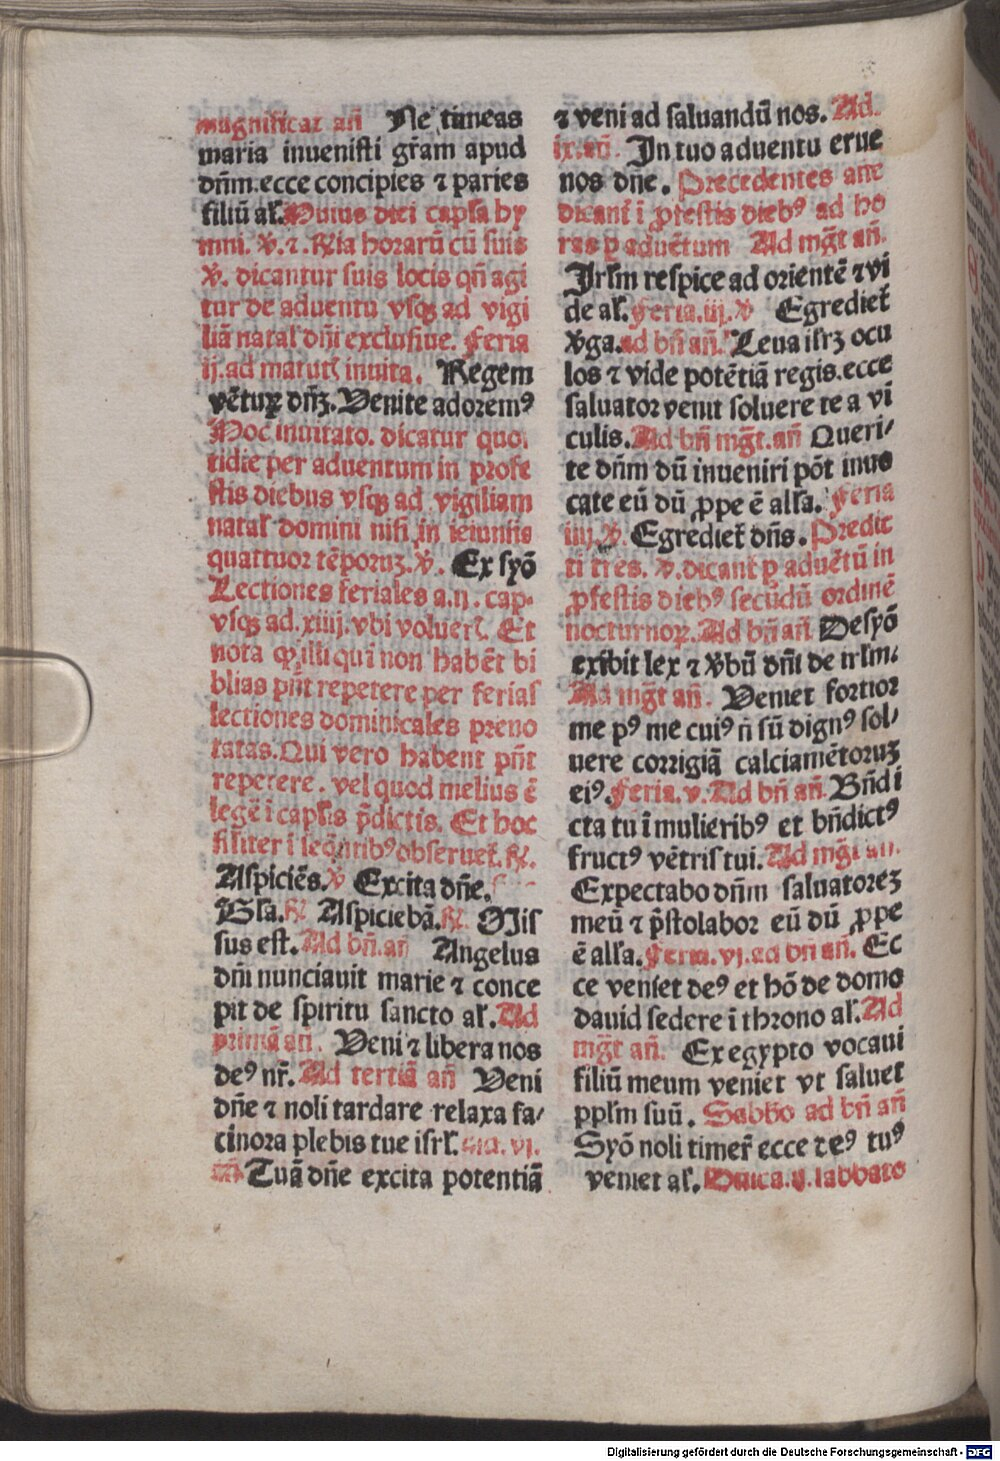 magnificat añ Ne timeas
maria inuenisti gr̄am apud
dñm.ecce concipies ⁊ paries
filiū al̄. Huius diei capl̄a hy
mni. ꝟ. ⁊. R̃ia horarū cū suis
ꝟ. dicantur suis locis qñ agi
tur de aduentu vsqꝫ ad vigi
liā natal̄ dñi exclusiue. Feria
ij. ad matut̄ inuita. Regem
vētuꝝ dñꝫ. Venite adoremꝰ
Hoc inuitato. dicatur quo⸗
tidie per aduentum in profe
stis diebus vsqꝫ ad vigiliam
natal̄ domini nisi in ieiunijs
quattuor tēporuꝫ. ꝟ. Ex syō
Lectiones feriales a.ij. cap⸗
vsqꝫ ad. xiiij. vbi voluer̄. Et
nota ꝙ illi qui non habēt bi
blias pñt repetere per ferias
lectiones dominicales preno
tatas. Qui vero habent pñt
repetere. vel quod melius ē
legē ī capl̄is p̄dictis. Et hoc
sil̄iter ī seq̄ntibꝰ obseruet̄. R̃.
Aspiciēs. ꝟ Excita dñe.
Gl̄a. R̃ Aspiciebā. R̃. Mis
sus est. Ad bñ. añ Angelus
dñi nunciauit marie ⁊ conce
pit de spiritu sancto al̄. Ad
primā añ. Veni ⁊ libera nos
deꝰ nr̄. Ad tertiā añ Veni
dñe ⁊ noli tardare relaxa fa⸗
cinora plebis tue isrl̄. vi.
añ Tuā dñe excita potentiā
⁊ veni ad saluandū nos. Ad
ix. añ. In tuo aduentu erue
nos dñe. Precedentes añe
dicant̄ ī ꝓfestis diebꝰ ad ho
ras ꝑ aduētum Ad mḡt añ.
Irl̄m respice ad orientē ⁊ vi
de al̄. Feria. iij. ꝟ Egrediet̄
v̄ga. ad bñ añ. Leua isrꝫ ocu
los ⁊ vide potētiā regis. ecce
saluator venit soluere te a vi
culis. Ad bñ mḡt. añ Queri⸗
te dñm dū inueniri pōt inuo
cate eū dū ꝓpe ē all̄a. Feria
iiij. ꝟ. Egrediet̄ dñs. Predic
ti tres. ꝟ. dicant̄ ꝑ aduētū in
ꝓfestis diebꝰ secūdū ordinē
nocturnoꝝ. Ad bñ añ De syō
exibit lex ⁊ v̄bū dñi de irl̄m⸗
Ad mḡt añ. Veniet fortior
me pꝰ me cuiꝰ ñ sū dignꝰ sol⸗
uere corrigiā calciamētoruꝫ
eiꝰ. Feria. v. Ad bñ añ. Bñdi
cta tu ī mulieribꝰ et bñdictꝰ
fructꝰ vētris tui. Ad mḡt añ.
Expectabo dñm saluatoreꝫ
meū ⁊ p̄stolabor eū dū ꝓpe
ē all̄a. Feria. vj. ad bñ añ. Ec
ce veniet deꝰ et hō de domo
dauid sedere ī throno al̄. Ad
mḡt añ. Ex egypto vocaui
filiū meum veniet vt saluet
ppl̄m suū. Sabb̄o ad bñ añ
Syō noli timer̄ ecce deꝰ tuꝰ
veniet al̄. Dñica. ij. sabbato
Digitalisierung gefördert durch die Deutsche Forschungsgemeinschaft - DFG